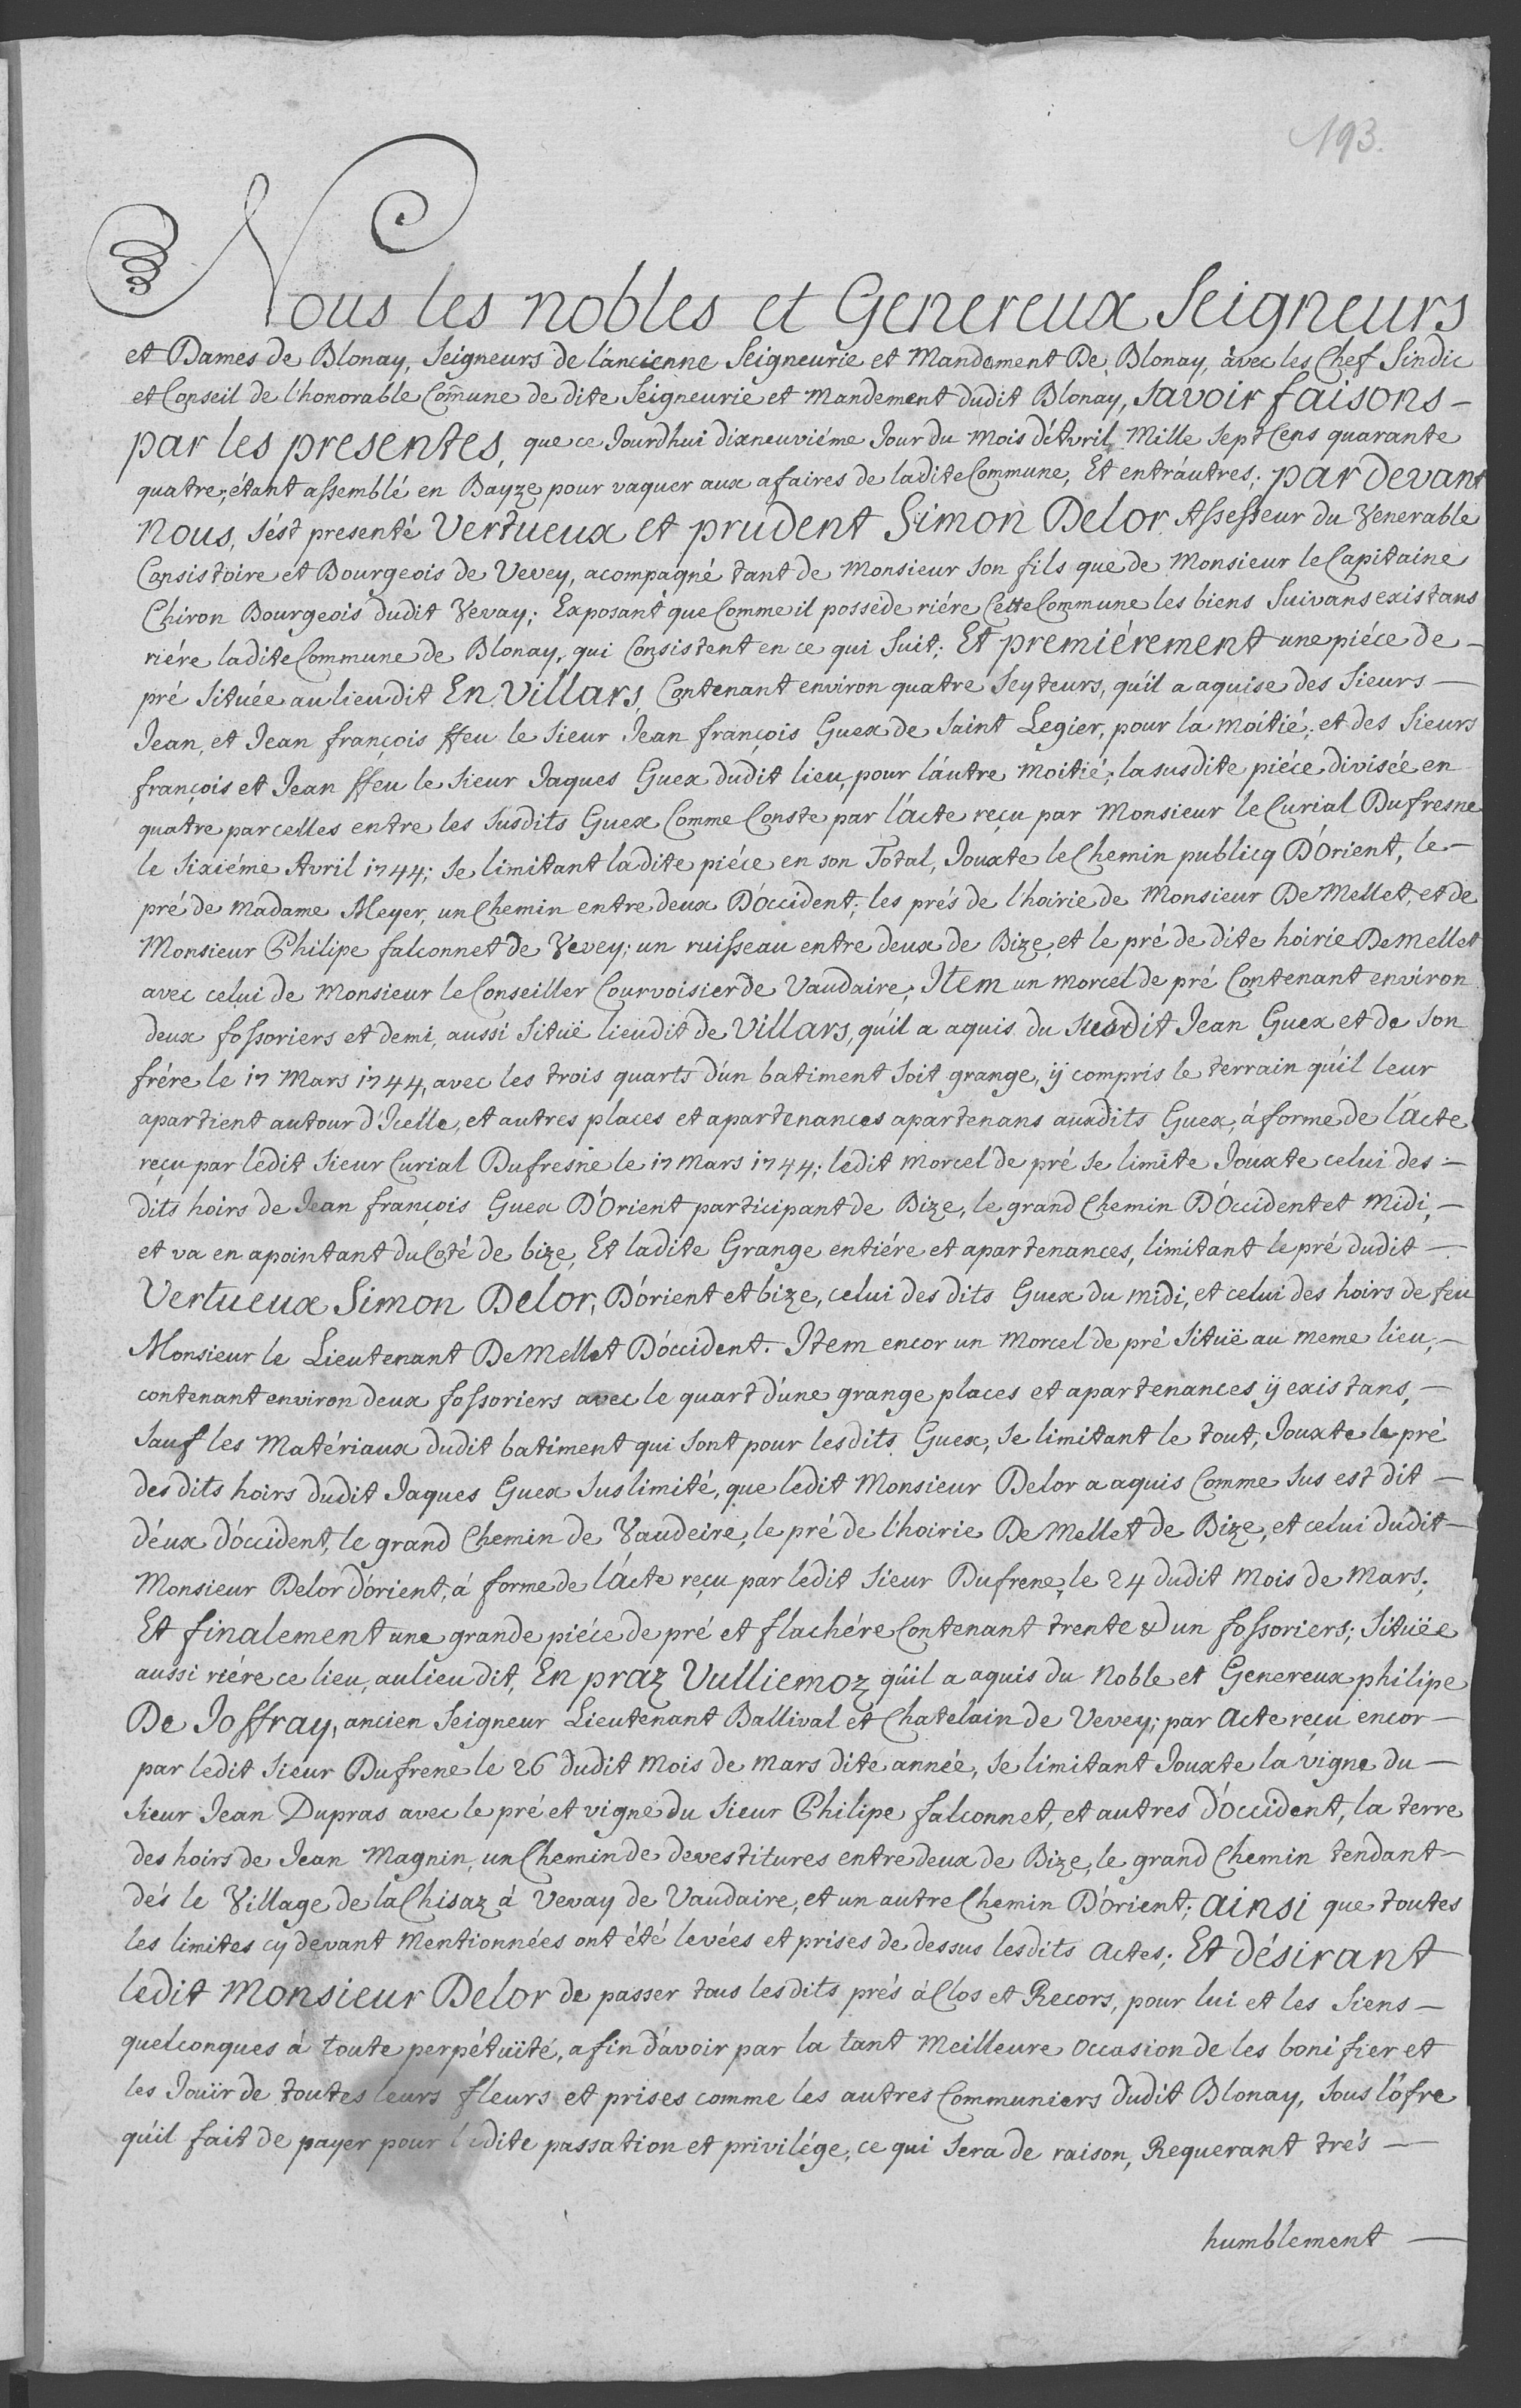 193.
Nous les nobles et Genereux Seigneurs
et Dames de Blonay, Seigneurs de l'ancienne Seigneurie et Mandement De Blonay, avec les Chef Sindic
et Conseil de l'honorable Com̃une de dite Seigneurie et Mandement dudit Blonay, Savoir faisons —
par les presentes, que ce Jourdhui dixneuviéme Jour du Mois d'Avril Mille Sept Cens quarante
quatre, étant assemblé en Bayze pour vaquer aux afaires de ladite Commune, Et entr'autres; par devant
nous, s'est presenté Vertueux et prudent Simon Delor Assesseur du Venerable
Consistoire et Bourgeois de Vevey, acompagné tant de Monsieur son fils que de Monsieur le Capitaine
Chiron Bourgeois dudit Vevay; Exposant que Comme il possede riére Cette Commune les biens Suivans existans
riére ladite Commune de Blonay, qui Consistent en ce qui Suit; Et premiérement une piéce de —
pré Située au lieu dit En Villars, Contenant environ quatre Seyteurs, qu'il a aquise des Sieurs —
Jean, et Jean françois ffeu le Sieur Jean françois Guex de Saint Legier, pour la moitié; et des Sieurs
françois et Jean ffeu le Sieur Jaques Guex dudit lieu, pour l'autre Moitié; la susdite piéce divisée en
quatre parcelles entre les Susdits Guex Comme Conste par l'Acte reçu par Monsieur le Curial Dufresne
le Sixiéme Avril 1744; Se limitant ladite piéce en son Total, Jouxte le Chemin publicq D'Orient, le —
pré de Madame Meyer, un Chemin entre deux D'Occident; les prés de l'hoirie de Monsieur De Mellet, et de
Monsieur Philipe falconnet de Vevey; un ruisseau entre deux de Bize, et le pré de dite hoirie De Mellet
avec celui de Monsieur le Conseiller Courvoisier de Vaudaire; Item un morcel de pré Contenant environ
deux fossoriers et demi, aussi Situé lieu dit de Villars, qu'il a aquis du Susdit Jean Guex et de Son
frére le 17 Mars 1744, avec les trois quarts d'un batiment Soit grange, ÿ compris le terrain qu'il leur
apartient autour d'Icelle, et autres places et apartenances apartenans auxdits Guex, à forme de l'Acte
reçu par ledit Sieur Curial Dufresne le 17 Mars 1744; ledit Morcel de pré Se limite Jouxte celui des —
dits hoirs de Jean françois Guex D'Orient participant de Bize, le grand Chemin D'Occident et Midi, —
et va en apointant du Coté de bize, Et ladite Grange entiére et apartenances, limitant le pré dudit —
Vertueux Simon Delor, D'orient et bize, celui des dits Guex du midi, et celui des hoirs de feu
Monsieur le Lieutenant De Mellet D'occident. Item encor un Morcel de pré Situë au meme lieu, —
contenant environ deux fossoriers avec le quart d'une grange places et apartenances ÿ existans, —
Sauf les Matériaux dudit batiment qui Sont pour lesdits Guex, Se limitant le tout, Jouxte le pré
des dits hoirs dudit Jaques Guex Suslimité, que ledit Monsieur Delor a aquis Comme Sus est dit —
d'eux d'occident, le grand Chemin de Vaudeire, le pré de l'hoirie De Mellet de Bize, et celui dudit —
Monsieur Delor d'orient, à forme de l'Acte reçu par ledit Sieur Dufrene, le 24 dudit Mois de Mars;
Et finalement une grande piéce de pré et flachére Contenant trente & un fossoriers; Situëe
aussi riére ce lieu, au lieu dit, En praz Vulliemoz qu'il a aquis du Noble et Genereux philipe
De Joffray, ancien Seigneur Lieutenant Ballival et Chatelain de Vevey; par Acte reçu encor —
par ledit Sieur Dufrene le 26 dudit Mois de Mars dite année, Se limitant Jouxte la vigne du —
Sieur Jean Dupras avec le pré et vigne du Sieur Philipe falconnet, et autres d'Occident, la terre
des hoirs de Jean Magnin, un Chemin de devestitures entre deux de Bize, le grand Chemin tendant —
dés le Village de la Chisaz à Vevay de Vaudaire, et un autre Chemin D'Orient; ainsi que toutes
les limites cy devant Mentionnées ont été levées et prises de dessus lesdits Actes; Et désirant
ledit Monsieur Delor de passer tous lesdits prés à Clos et Recors, pour lui et les Siens —
quelconques à toute perpétuïté, afin d'avoir par la tant Meilleure occasion de les bonifier et
les Jouïr de toutes leurs fleurs et prises comme les autres Communiers dudit Blonay, Sous l'ofre
qu'il fait de payer pour ladite passation et privilége, ce qui Sera de raison, Requerant trés —
humblement —